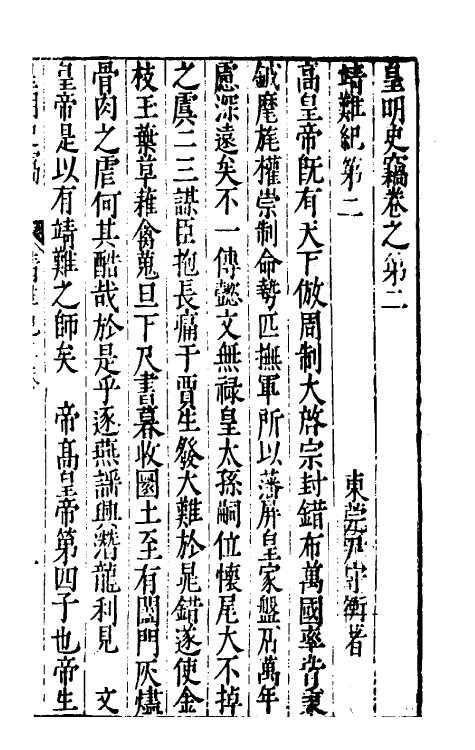 皇明史竊卷之第二
靖難紀第二 東莞尹守衡著
高皇帝旣有天下倣周制大啓宗封錯布萬國率皆秉
鉞麾旄權崇制命勢匹撫軍所以藩屏皇家盤石萬年
慮深遠矣不一傳懿文無禄皇太孫嗣位懷尾大不掉
之虞二三謀臣抱長痛于賈生發大難於晁錯遂使金
枝玉葉草薙禽蒐旦下尺書暮收圜土至有闔門灰燼
骨肉之虐何其酷哉於是乎逐燕謡興潛龍利見 文
皇帝是以有靖難之師矣 帝高皇帝第四子也帝生